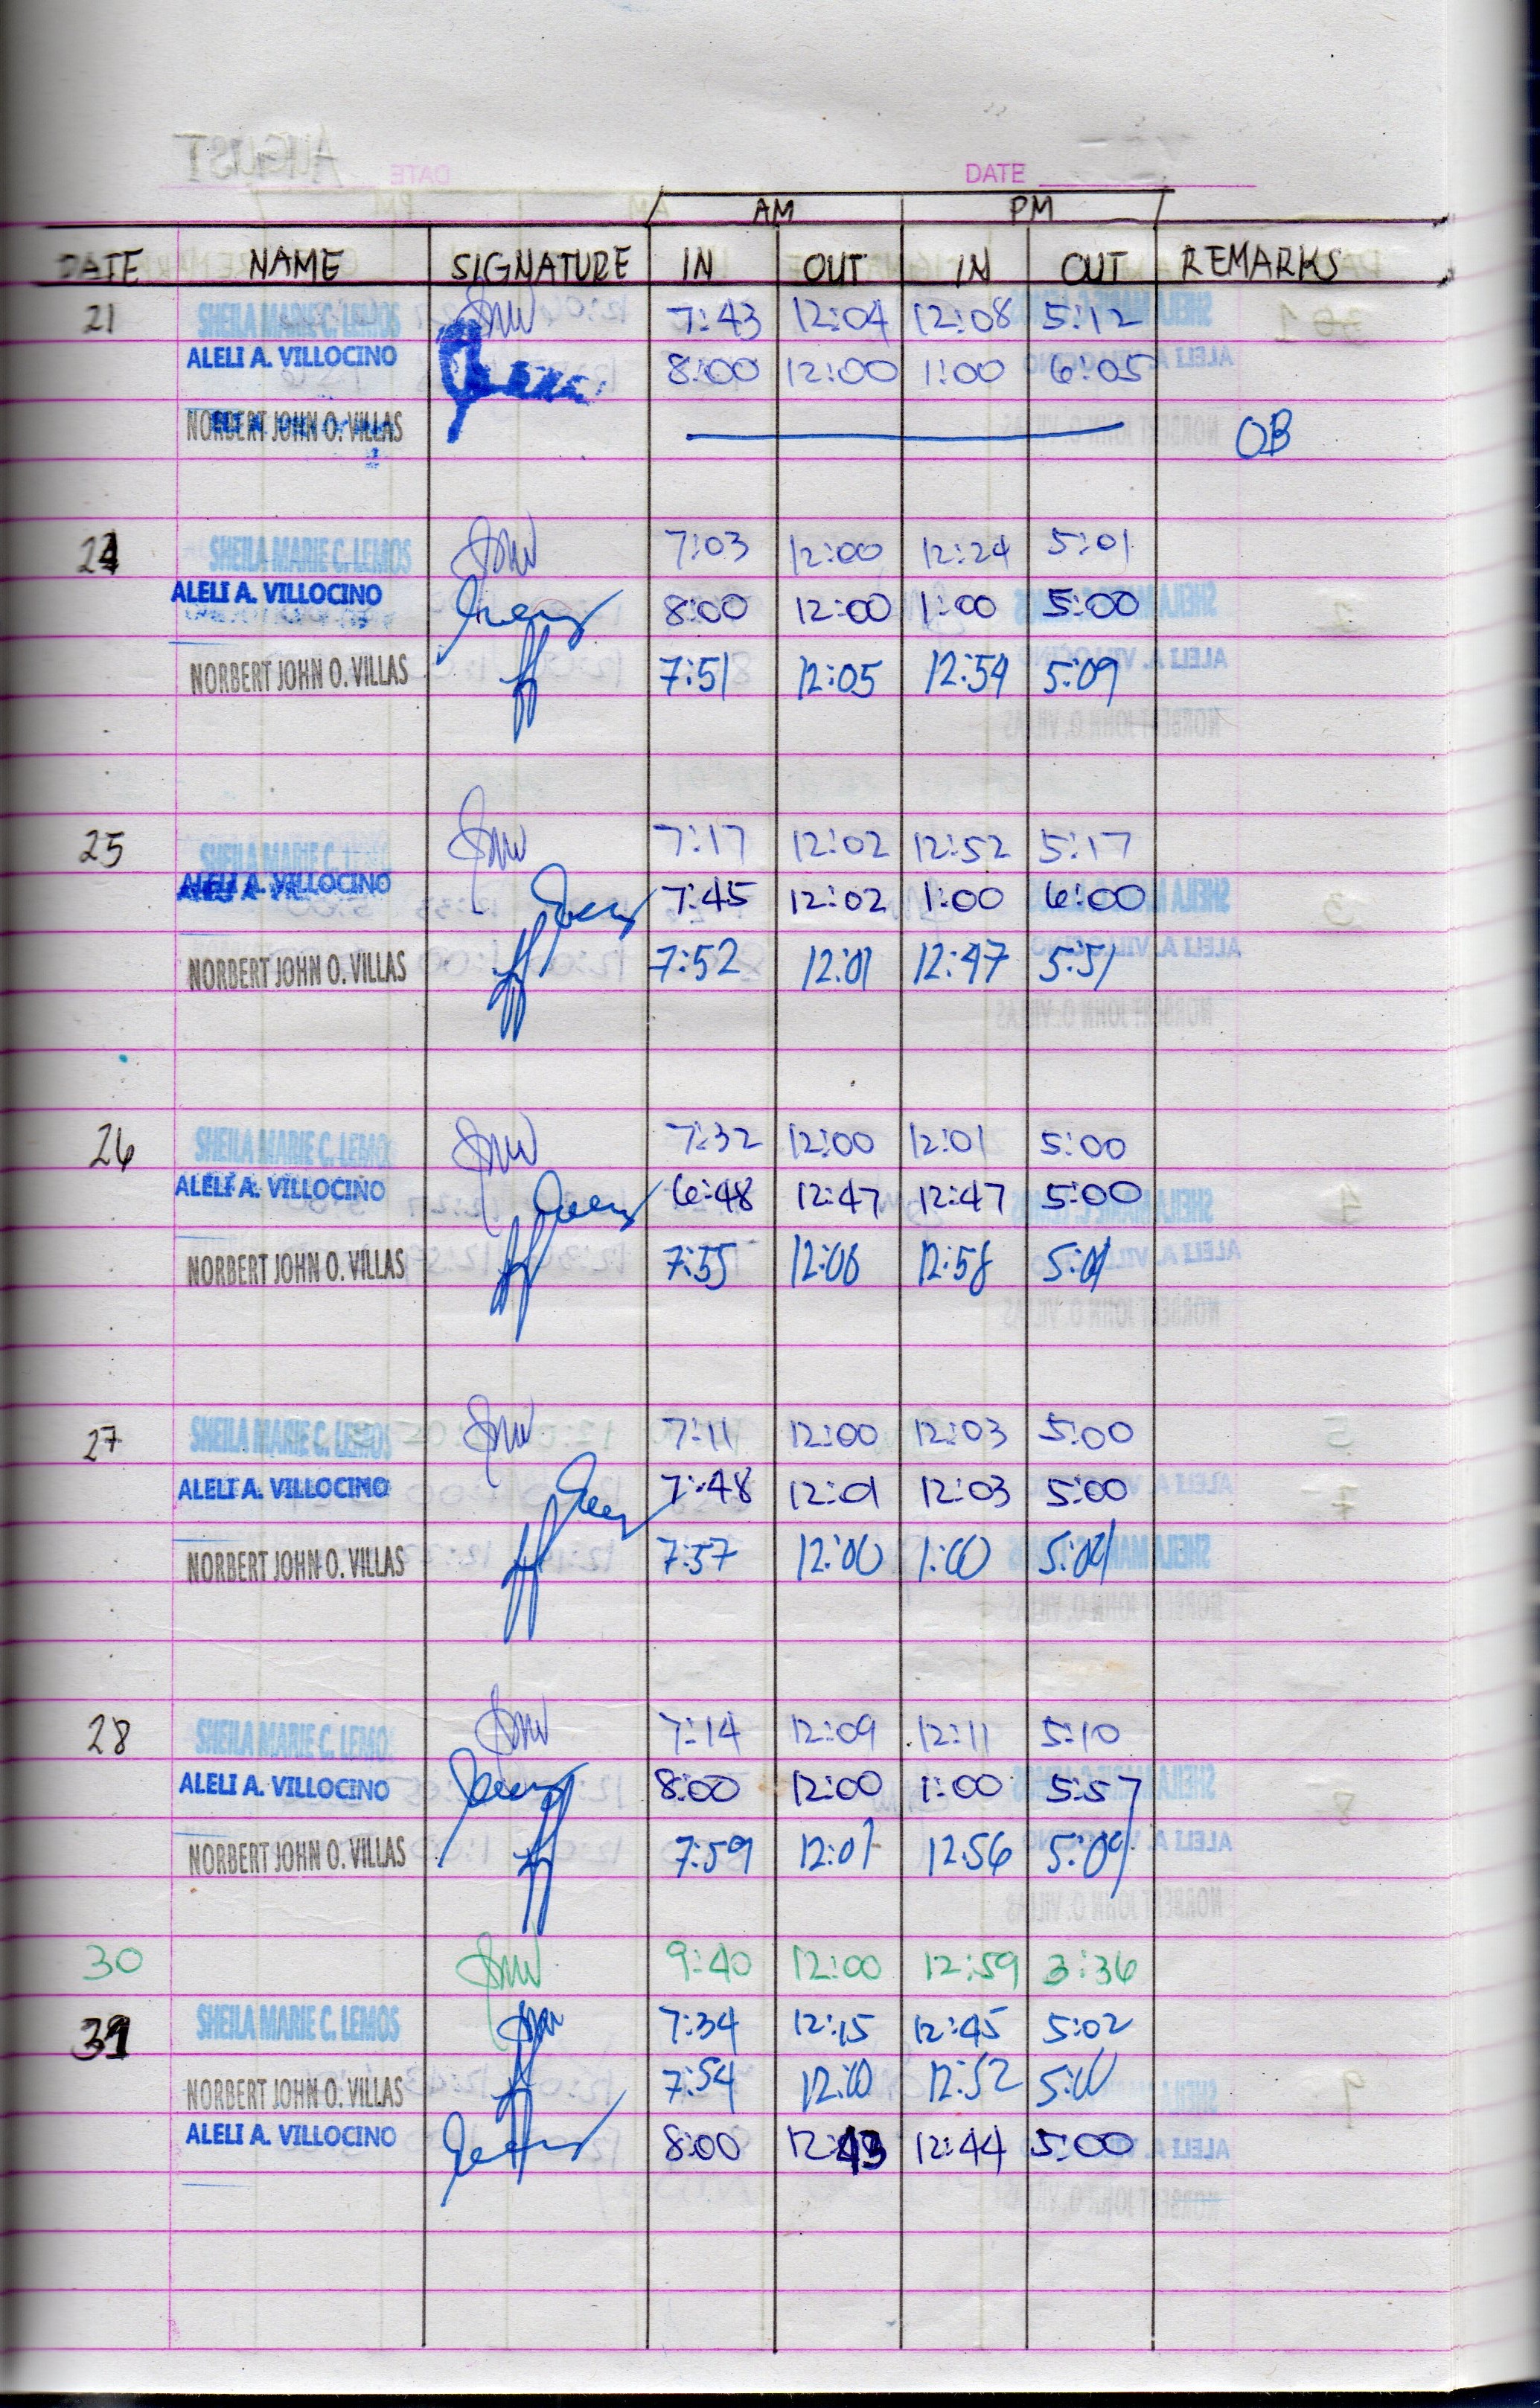 DATE
AM PM
DATE NAME SIGNATURE IN OUT IN OUT REMARKS
21 SHEILA MARIE C. LEMOS 7:43 12:04 12:08 5:12
ALELI A. VILLOCINO 8:00 12:00 1:00 6:05
NORBERT JOHN O. VILLAS OB
24 SHEILA MARIE C. LEMOS 7:03 12:00 12:24 5:01
ALELI A. VILLOCINO 8:00 12:00 1:00 5:00
NORBERT JOHN O. VILLAS 7:51 12:05 12:54 5:09
25 SHEILA MARIE C. LEMO 7:17 12:02 12:52 5:17
ALELI A. VILLOCINO 7:45 12:02 1:00 6:00
NORBERT JOHN O. VILLAS 7:52 12:01 12:47 5:51
26 SHEILA MARIE C. LEMO 7:32 12:00 12:01 5:00
ALELI A. VILLOCINO 6:48 12:47 12:47 5:00
NORBERT JOHN O. VILLAS 7:55 12:58
27 SHEILA MARIE C. LEMOS 7:11 12:00 12:03 5:00
ALELI A. VILLOCINO 7:48 12:01 12:03 5:00
NORBERT JOHN O. VILLAS 7:57 12:00 1:00
28 SHEILA MARIE C. LEMO 7:14 12:09 12:11 5:10
ALELI A. VILLOCINO 8:00 12:00 1:00 5:57
NORBERT JOHN O. VILLAS 7:59 12:01 12:56 5:09
30 9:40 12:00 12:59 3:36
31 SHEILA MARIE C. LEMOS 7:34 12:15 12:45 5:02
NORBERT JOHN O. VILLAS 7:54 12:00 12:52 5:00
ALELI A. VILLOCINO 8:00 12:43 12:44 5:00